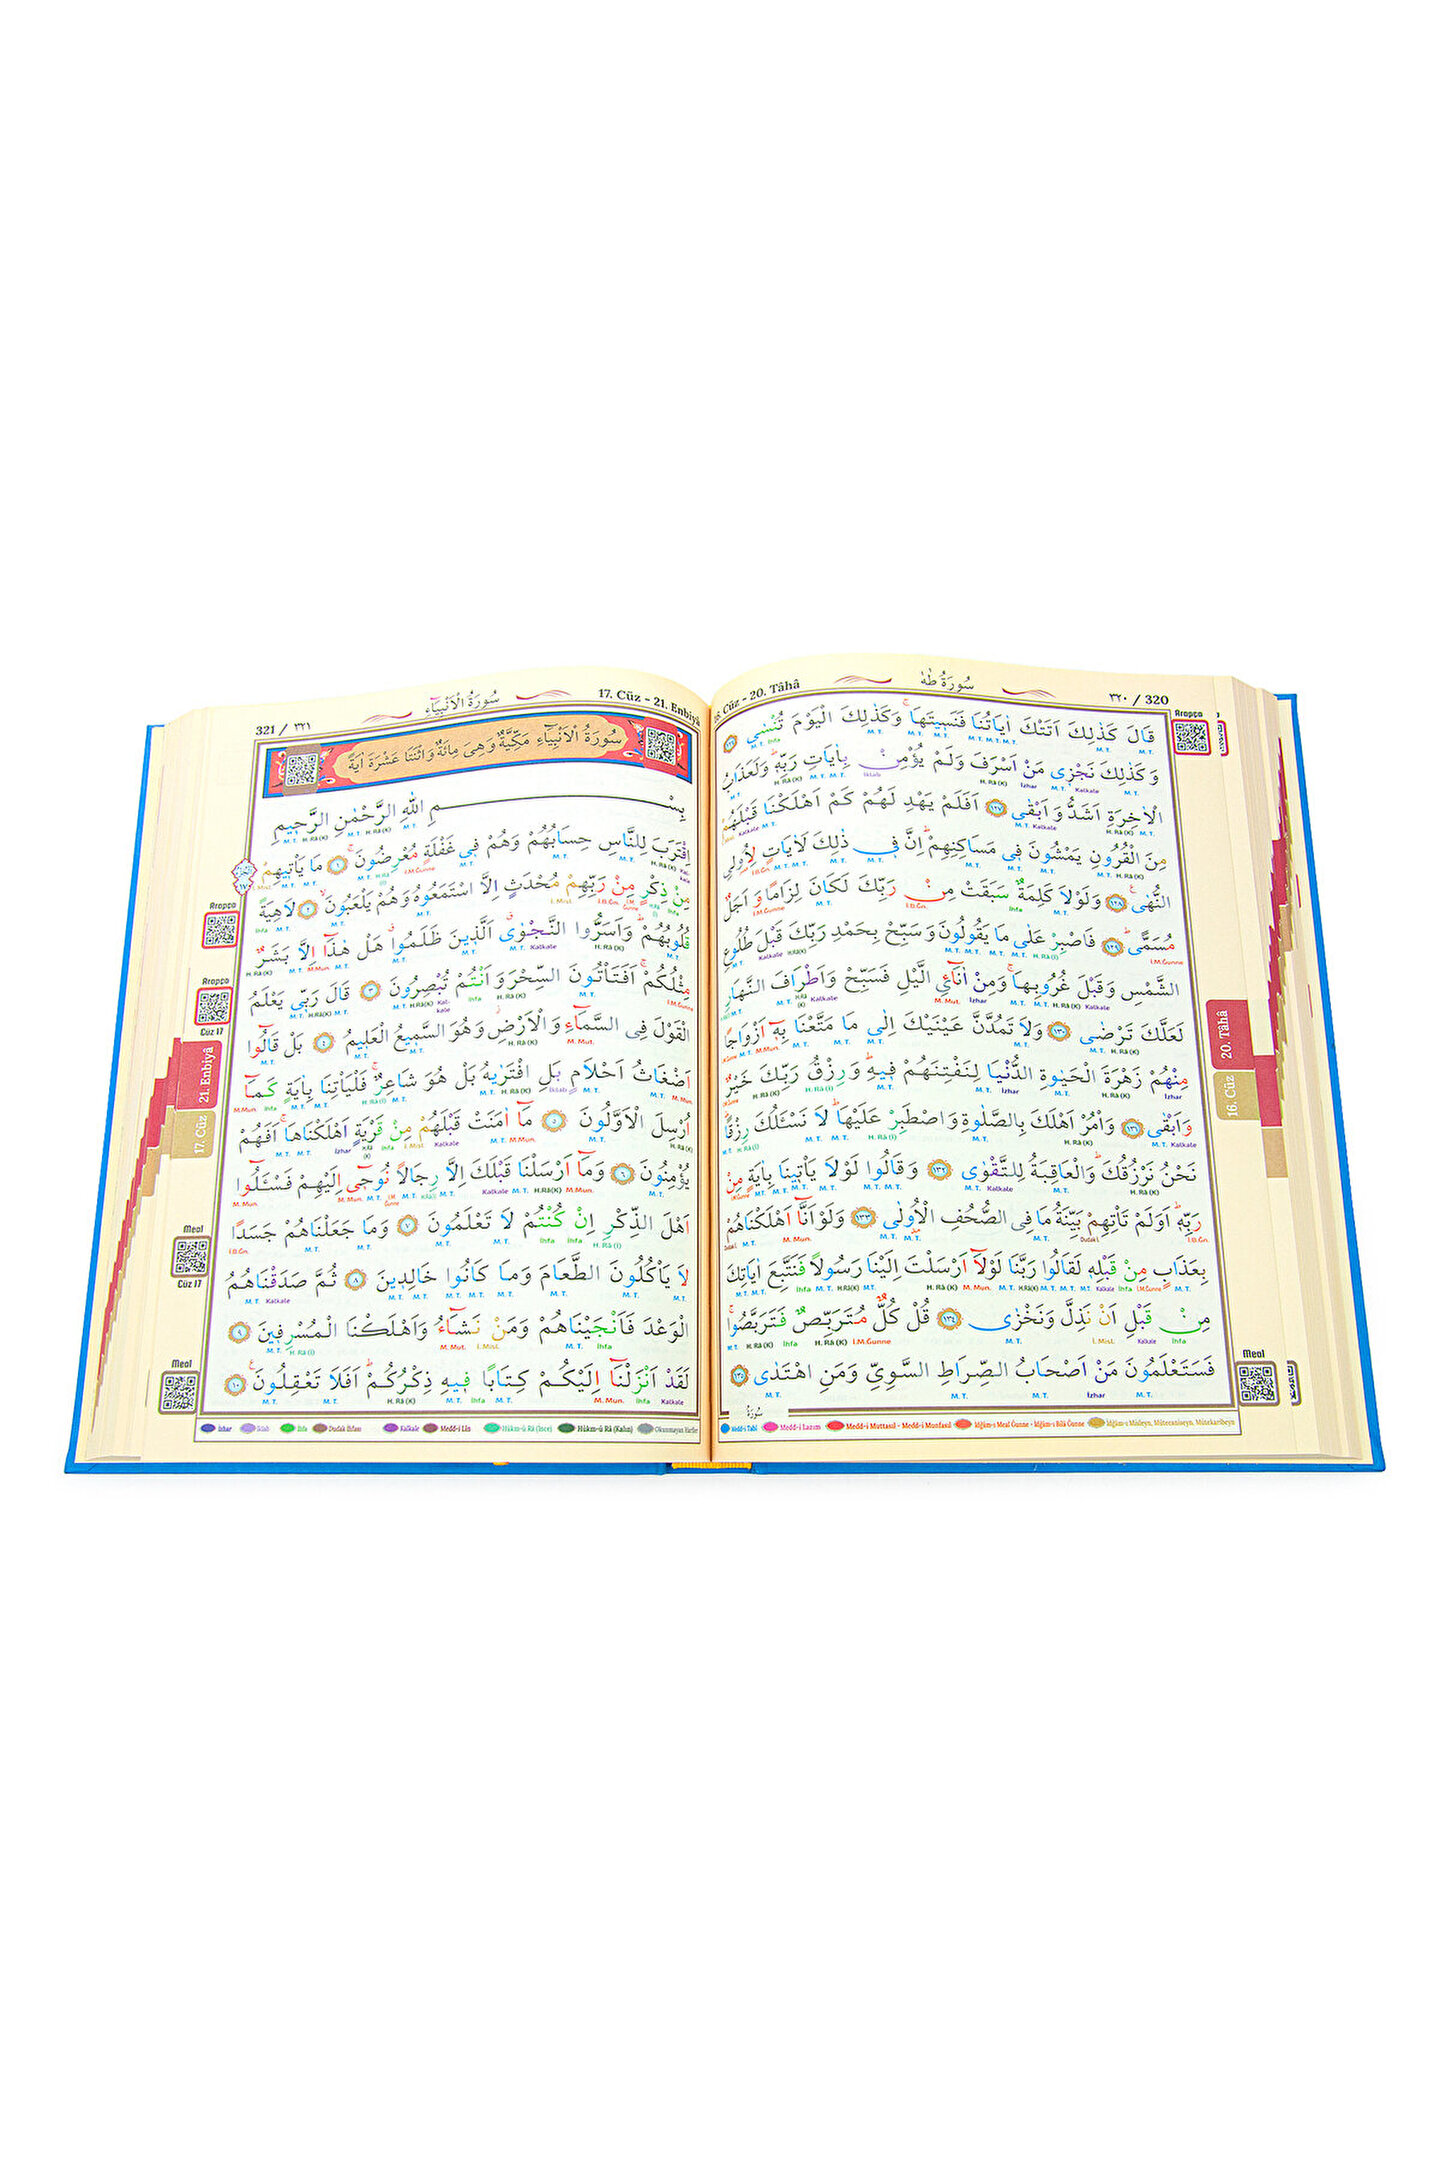 ٣٢٠ / 320
سُورَةُ طٰهٰ
16. Cüz - 20. Tâhâ
قَالَ كَذٰلِكَ اَتَتْكَ اٰيَاتُنَا فَنَسِيتَهَاۚ وَكَذٰلِكَ الْيَوْمَ تُنْسٰى ﴿١٢٦﴾
وَكَذٰلِكَ نَجْزِى مَنْ اَسْرَفَ وَلَمْ يُؤْمِنْ بِاٰيَاتِ رَبِّهِۜ وَلَعَذَابُ
الْاٰخِرَةِ اَشَدُّ وَاَبْقٰى ﴿١٢٧﴾ اَفَلَمْ يَهْدِ لَهُمْ كَمْ اَهْلَكْنَا قَبْلَهُمْ
مِنَ الْقُرُونِ يَمْشُونَ فِى مَسَاكِنِهِمْۜ اِنَّ فِى ذٰلِكَ لَاٰيَاتٍ لِاُولِى
النُّهٰىۚ ﴿١٢٨﴾ وَلَوْلَا كَلِمَةٌ سَبَقَتْ مِنْ رَبِّكَ لَكَانَ لِزَامًا وَاَجَلٌ
مُسَمًّىۜ ﴿١٢٩﴾ فَاصْبِرْ عَلٰى مَا يَقُولُونَ وَسَبِّحْ بِحَمْدِ رَبِّكَ قَبْلَ طُلُوعِ
الشَّمْسِ وَقَبْلَ غُرُوبِهَاۚ وَمِنْ اٰنَآئِ الَّيْلِ فَسَبِّحْ وَاَطْرَافَ النَّهَارِ
لَعَلَّكَ تَرْضٰى ﴿١٣٠﴾ وَلَا تَمُدَّنَّ عَيْنَيْكَ اِلٰى مَا مَتَّعْنَا بِهِٓ اَزْوَاجًا
مِنْهُمْ زَهْرَةَ الْحَيٰوةِ الدُّنْيَا لِنَفْتِنَهُمْ فِيهِۜ وَرِزْقُ رَبِّكَ خَيْرٌ
وَاَبْقٰى ﴿١٣١﴾ وَاْمُرْ اَهْلَكَ بِالصَّلٰوةِ وَاصْطَبِرْ عَلَيْهَاۜ لَا نَسْـَٔلُكَ رِزْقًاۜ
نَحْنُ نَرْزُقُكَۜ وَالْعَاقِبَةُ لِلتَّقْوٰى ﴿١٣٢﴾ وَقَالُوا لَوْلَا يَاْتِينَا بِاٰيَةٍ مِنْ
رَبِّهِۜ اَوَلَمْ تَاْتِهِمْ بَيِّنَةُ مَا فِى الصُّحُفِ الْاُولٰى ﴿١٣٣﴾ وَلَوْ اَنَّٓا اَهْلَكْنَاهُمْ
بِعَذَابٍ مِنْ قَبْلِهِ لَقَالُوا رَبَّنَا لَوْلَٓا اَرْسَلْتَ اِلَيْنَا رَسُولًا فَنَتَّبِعَ اٰيَاتِكَ
مِنْ قَبْلِ اَنْ نَذِلَّ وَنَخْزٰى ﴿١٣٤﴾ قُلْ كُلٌّ مُتَرَبِّصٌ فَتَرَبَّصُواۚ
فَسَتَعْلَمُونَ مَنْ اَصْحَابُ الصِّرَاطِ السَّوِىِّ وَمَنِ اهْتَدٰى ﴿١٣٥﴾
Medd-i Tabî Medd-i Lazım Medd-i Muttasıl - Medd-i Munfasıl İdğâm-ı Meal Ğunne - İdğâm-ı Bilâ Ğunne İdğâm-ı Misleyn, Mütecaniseyn, Mütekaribeyn
Arapça
20. Tâhâ
16. Cüz
Meal
17. Cüz - 21. Enbiyâ
سُورَةُ الْاَنْبِيَٓاءِ
321 / ٣٢١
سُورَةُ الْاَنْبِيَٓاءِ مَكِّيَّةٌ وَهِىَ مِائَةٌ وَاثْنَتَا عَشْرَةَ اٰيَةً
بِسْمِ اللّٰهِ الرَّحْمٰنِ الرَّحِيمِ
اِقْتَرَبَ لِلنَّاسِ حِسَابُهُمْ وَهُمْ فِى غَفْلَةٍ مُعْرِضُونَۚ ﴿١﴾ مَا يَاْتِيهِمْ
مِنْ ذِكْرٍ مِنْ رَبِّهِمْ مُحْدَثٍ اِلَّا اسْتَمَعُوهُ وَهُمْ يَلْعَبُونَۙ ﴿٢﴾ لَاهِيَةً
قُلُوبُهُمْۜ وَاَسَرُّوا النَّجْوٰىۗ اَلَّذِينَ ظَلَمُواۗ هَلْ هٰذَٓا اِلَّا بَشَرٌ
مِثْلُكُمْۚ اَفَتَاْتُونَ السِّحْرَ وَاَنْتُمْ تُبْصِرُونَ ﴿٣﴾ قَالَ رَبِّى يَعْلَمُ
الْقَوْلَ فِى السَّمَٓاءِ وَالْاَرْضِۘ وَهُوَ السَّمِيعُ الْعَلِيمُ ﴿٤﴾ بَلْ قَالُٓوا
اَضْغَاثُ اَحْلَامٍ بَلِ افْتَرٰيهُ بَلْ هُوَ شَاعِرٌۚ فَلْيَاْتِنَا بِاٰيَةٍ كَمَٓا
اُرْسِلَ الْاَوَّلُونَ ﴿٥﴾ مَٓا اٰمَنَتْ قَبْلَهُمْ مِنْ قَرْيَةٍ اَهْلَكْنَاهَاۚ اَفَهُمْ
يُؤْمِنُونَ ﴿٦﴾ وَمَٓا اَرْسَلْنَا قَبْلَكَ اِلَّا رِجَالًا نُوحِٓى اِلَيْهِمْ فَسْـَٔلُٓوا
اَهْلَ الذِّكْرِ اِنْ كُنْتُمْ لَا تَعْلَمُونَ ﴿٧﴾ وَمَا جَعَلْنَاهُمْ جَسَدًا
لَا يَاْكُلُونَ الطَّعَامَ وَمَا كَانُوا خَالِدِينَ ﴿٨﴾ ثُمَّ صَدَقْنَاهُمُ
الْوَعْدَ فَاَنْجَيْنَاهُمْ وَمَنْ نَشَٓاءُ وَاَهْلَكْنَا الْمُسْرِفِينَ ﴿٩﴾
لَقَدْ اَنْزَلْنَٓا اِلَيْكُمْ كِتَابًا فِيهِ ذِكْرُكُمْۜ اَفَلَا تَعْقِلُونَ۟ ﴿١٠﴾
İzhar İklab İhfa Dudak İhfası Kalkale Medd-i Lîn Hükm-ü Râ (İnce) Hükm-ü Râ (Kalın) Okunmayan Harfler
Arapça
Arapça
Cüz 17
21. Enbiyâ
17. Cüz
Meal
Cüz 17
Meal